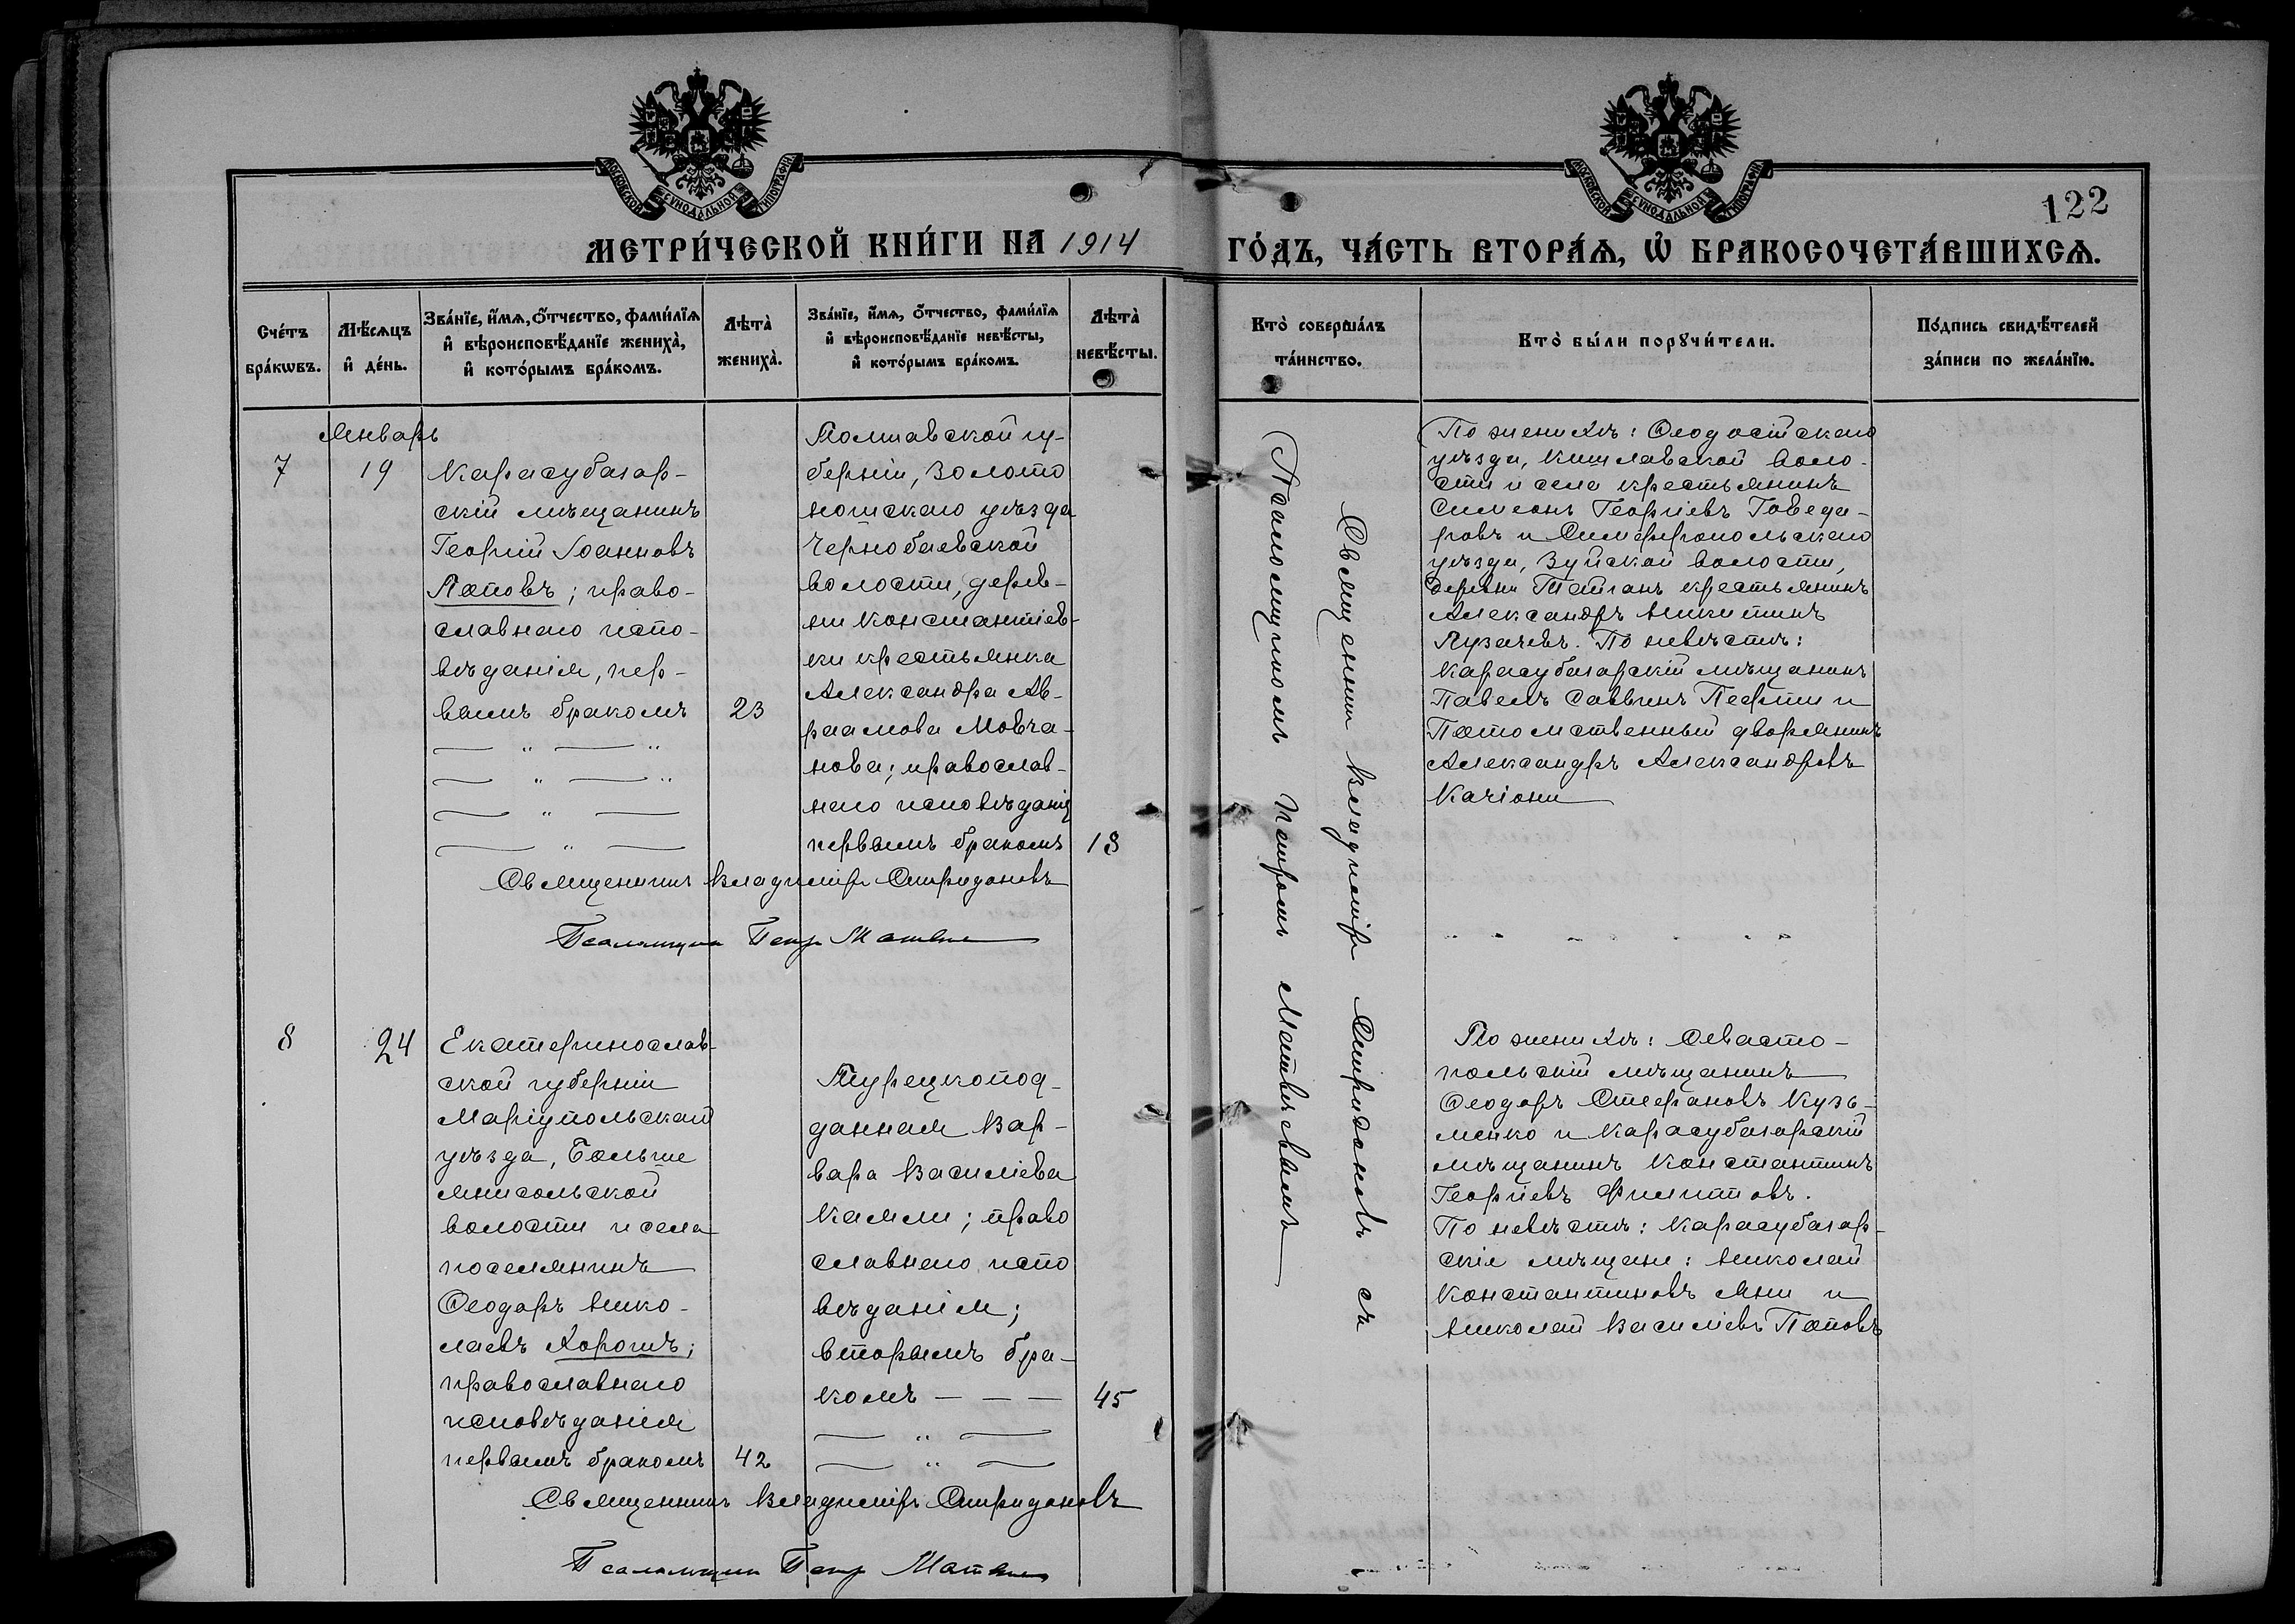 МОСКОВСКОЙ СѴНОДАЛЬНОЙ ТИПОГРАФІИ
МОСКОВСКОЙ СѴНОДАЛЬНОЙ ТИПОГРАФІИ
122
МЕТРИ́ЧЕСКОЙ КНИ́ГИ НА 1914 ГО́ДЪ, ЧА́СТЬ ВТОРА́Ѧ, Ѽ БРАКОСОЧЕТА́ВШИХСѦ.
Сче́тъ
бра́кѡвъ.
Мѣ́сѧцъ
и҆ де́нь.
Зва́нїе, и҆́мѧ, ѻ҆́тчество, фами́лїѧ
и҆ вѣроисповѣ́данїе жениха̀,
и҆ кото́рымъ бра́комъ.
Лѣта̀
жениха̀.
Зва́нїе, и҆́мѧ, ѻ҆́тчество, фами́лїѧ
и҆ вѣроисповѣ́данїе невѣ́сты,
и҆ кото́рымъ бра́комъ.
Лѣта̀
невѣ́сты.
Кто̀ соверша́лъ
та́инство.
Кто̀ бы́ли порꙋчи́тели.
По́дпись свидѣ́телей
за́писи по жела́нїю.
Январь
7
19
Карасубазар-
скій мѣщанинъ
Георгій Іоанновъ
Поповъ; право-
славнаго испо-
вѣданія, пер-
вымъ бракомъ
23
Полтавской гу-
берніи, Золото
ношскаго уѣзда
Чернобаевской
волости, дерев-
ни Константіев-
ки крестьянка
Александра Ав-
раамова Мовча-
нова; православ-
наго исповѣданія
первымъ бракомъ
18
Священникъ Владиміръ Спиридоновъ
Псаломщикъ Петр Матвѣев
Священникъ Владиміръ Спиридоновъ съ
Псаломщикомъ Петромъ Матвѣевымъ
По женихѣ: Ѳеодосійскаго
уѣзда, Кишлавской воло-
сти и села крестьянинъ
Симеонъ Георгіевъ Говеда-
ровъ и Симферопольскаго
уѣзда, Зуйской волости,
деревни Тайганъ крестьянинъ
Александръ Никитинъ
Пузачевъ. По невѣстѣ:
Карасубазарскій мѣщанинъ
Павелъ Саввинъ Пефти и
Потомственный дворянинъ
Александръ Александровъ
Качіони
8
24
Екатеринослав-
ской губерніи
Маріупольскаго
уѣзда, Больше
Янисольской
волости и села
поселянинъ
Ѳеодоръ Нико-
лаевъ Хорошъ;
православнаго
исповѣданія
первымъ бракомъ
42
Турецкопод-
данная Вар-
вара Василіева
Калли; право
славнаго испо
вѣданія;
вторымъ бра-
комъ — — —
45
Священникъ Владиміръ Спиридоновъ
Псаломщикъ Петр Матвѣев
По женихѣ: Севасто-
польскій мѣщанинъ
Ѳеодоръ Стефановъ Кузь-
менко и Карасубазарскій
мѣщанинъ Константинъ
Георгіевъ Филипповъ.
По невѣстѣ: Карасубазар-
скіе мѣщане: Николай
Константиновъ Яни и
Николай Василіевъ Поповъ